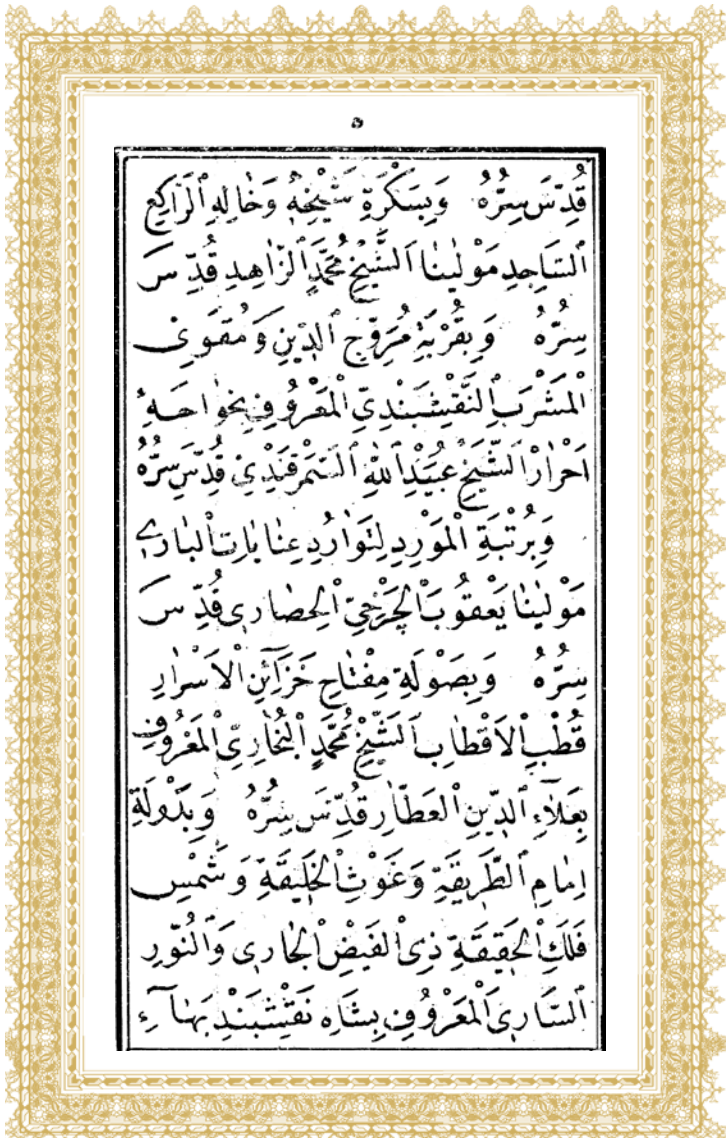 ٥
قُدِّسَ سِرُّهُ وَبِسَكْرَةِ شَيْخِهِ وَخَالِهِ ٱلرَّاكِعِ
ٱلسَّاجِدِ مَوْلٰينَا ٱلشَّيْخِ مُحَمَّدٍ ٱلزَّاهِدِ قُدِّسَ
سِرُّهُ وَبِقُرْبَةِ مُرَوِّجِ ٱلدِّينِ وَمُقَوِّى
ٱلْمَشْرَبِ ٱلنَّقْشِبَنْدِيِّ ٱلْمَعْرُوفِ بِخٰواجَهِ
اَحْرَارْ ٱلشَّيْخِ عُبَيْدِ ٱللّٰهِ ٱلسَّمَرْقَنْدِىِّ قُدِّسَ سِرُّهُ
وَبِرُتْبَةِ ٱلْمَوْرِدِ لِتَوَارُدِ عِنَايَاتِ ٱلْبَارِى
مَوْلٰينَا يَعْقُوبَ ٱلْجَرْخِيِّ ٱلْحِصَارِى قُدِّسَ
سِرُّهُ وَبِصَوْلَةِ مِفْتَاحِ خَزَآئِنِ ٱلْاَسْرَارِ
قُطْبِ ٱلْاَقْطَابِ ٱلشَّيْخِ مُحَمَّدٍ ٱلْبُخَارِيِّ ٱلْمَعْرُوفِ
بِعَلَاءِ ٱلدِّينِ ٱلْعَطَّارِ قُدِّسَ سِرُّهُ وَبِدَوْلَةِ
اِمَامِ ٱلطَّرِيقَةِ وَغَوْثِ ٱلْخَلِيقَةِ وَشَمْسِ
فَلَكِ ٱلْحَقِيقَةِ ذِى ٱلْفَيْضِ ٱلْجَارِى وَٱلنُّورِ
ٱلسَّارِى ٱلْمَعْرُوفِ بِشَاهِ نَقْشِبَنْدِ بَهَآءِ